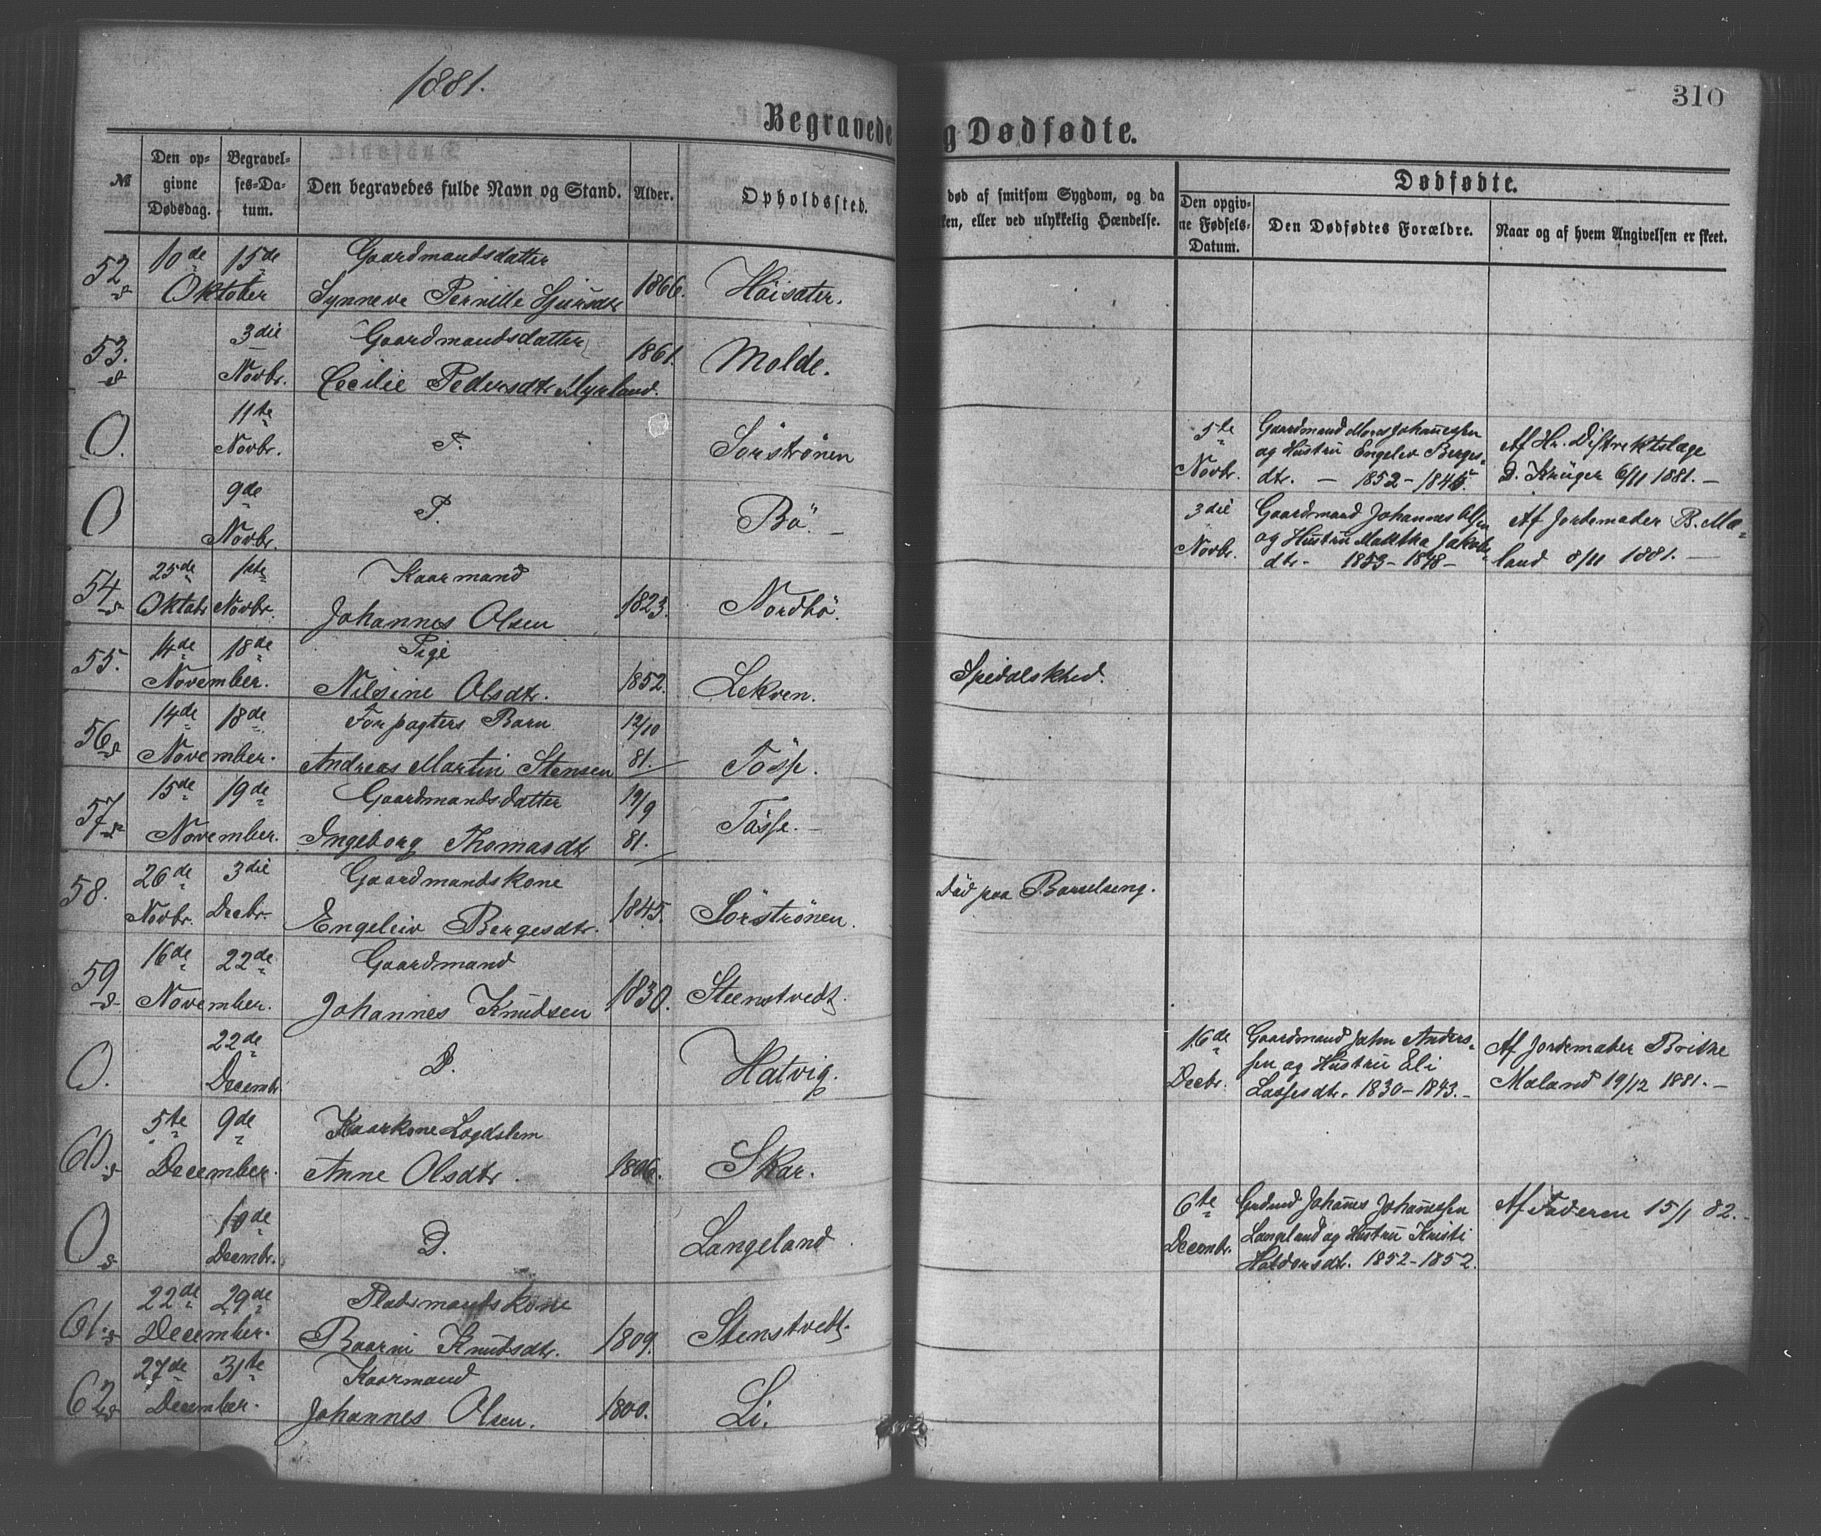 1881.
310
Begravede
g Dødfødte.
№
Den opgivne Dødsdag.
Begravelses-Datum.
Den begravedes fulde Navn og Stand.
Alder.
Opholdssted.
død af smitsom Sygdom, og da
ken, eller ved ulykkelig Hændelse.
Dødfødte.
Den opgivne Fødsels-Datum.
Den Dødfødtes Forældre.
Naar og af hvem Angivelsen er skeet.
52 10de 15de Gaardmandsdatter
d Oktober Synneve Pernille Sjursdtr 1866. Höisæter.
53. 3die Gaardmandsdatter
d Novbr. Cecilie Pedersdtr Myrland. 1861. Molde.
O. 11te Novbr. Sörströnen
5te Novbr. Gaardmand Mons Johannessen
og Hustru Engelev Berges-
dtr. — 1852 – 1845.
Af Hr. Distriktslæge
D. Krüger 6/11 1881. —
O 9de Novbr. P. Bö. —
3die Novbr. Gaardmand Johannes Olsen
og Hustru Maltha Jakobs
dtr. – 1853 – 1848 –
Af Jordemoder B. Mæ-
land 8/11 1881. —
54 25de 1ste Kaarmand
d Oktobr Novbr. Johannes Olsen 1823. Nordbö.
55. 14de 18de Pige
November. Nilsine Olsdtr. 1852. Lekven. Spedalskhed.
56 14de 18de Forpagters Barn 12/10
d November. Andreas Martin Stensen 81. Tösse.
57 15de 19de Gaardmandsdatter 19/9
d November. Ingeborg Thomasdtr 81. Tösse. —
58. 26de 3die Gaardmandskone
Novbr. Decbr. Engeleiv Bergesdtr. 1845. Sörströnen. Död paa Barselseng.
59 16de 22de Gaardmand
d November. Johannes Knudsen 1830. Steenstvedt.
O. 22de Decembr D. Hatvig.
16de Decbr. Gaardmand John Anders-
sen og Hustru Eli
Lassesdtr. 1830 – 1843. –
Af Jordemoder Briske
Mæland 19/12 1881. —
60. 5te 9de Kaarkone Lægdslem
d December. Anne Olsdtr. 1806. Skar.
O 10de
d Decembr. D. Langeland
6te Decembr. Grdmd Johañes Johañessen
Langeland og Hustru Kristi
Haldorsdt. 1852 – 1852.
Af Faderen 15/1 82. –
61. 22de 29de Pladsmandskone
d December. Baarni Knudsdtr. 1809. Stenstvedt.
62 27de 31te Kaarmand
d December. Johannes Olsen. 1800. Li.